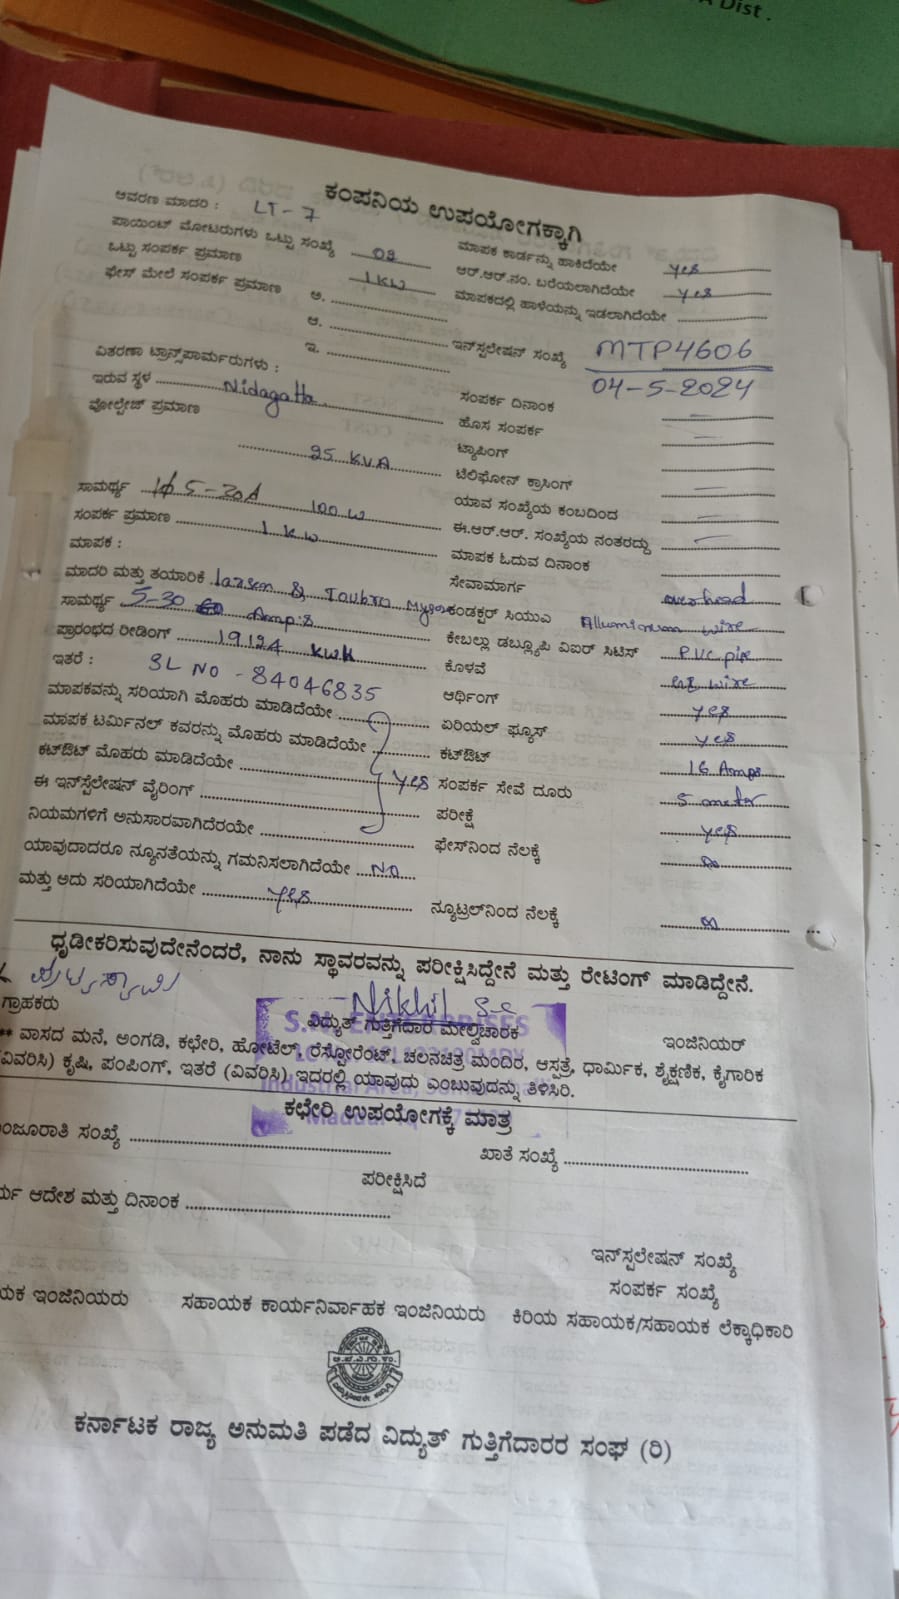 A Dist .
ಕಂಪನಿಯ ಉಪಯೋಗಕ್ಕಾಗಿ
ಆವರಣ ಮಾದರಿ : LT - 7
ಪಾಯಿಂಟ್ ಮೋಟರುಗಳು ಒಟ್ಟು ಸಂಖ್ಯೆ
ಒಟ್ಟು ಸಂಪರ್ಕ ಪ್ರಮಾಣ 1 KW
ಫೇಸ್ ಮೇಲೆ ಸಂಪರ್ಕ ಪ್ರಮಾಣ ಅ.
ಆ.
ಇ.
ವಿತರಣಾ ಟ್ರಾನ್ಸ್‌ಪಾರ್ಮರುಗಳು :
ಇರುವ ಸ್ಥಳ Nidagatta
ವೋಲ್ಟೇಜ್ ಪ್ರಮಾಣ
25 KVA
ಸಾಮರ್ಥ್ಯ 1ϕ 5-20A 100 W
ಸಂಪರ್ಕ ಪ್ರಮಾಣ 1 KW
ಮಾಪಕ :
ಮಾದರಿ ಮತ್ತು ತಯಾರಿಕೆ Larsen & Toubro
ಸಾಮರ್ಥ್ಯ 5-30 Amps
ಪ್ರಾರಂಭದ ರೀಡಿಂಗ್ KWH
ಇತರೆ : SL NO - 84046835
ಮಾಪಕವನ್ನು ಸರಿಯಾಗಿ ಮೊಹರು ಮಾಡಿದೆಯೇ
ಮಾಪಕ ಟರ್ಮಿನಲ್ ಕವರನ್ನು ಮೊಹರು ಮಾಡಿದೆಯೇ
ಕಟ್‌ಔಟ್ ಮೊಹರು ಮಾಡಿದೆಯೇ yes
ಈ ಇನ್‌ಸ್ಟಲೇಷನ್ ವೈರಿಂಗ್
ನಿಯಮಗಳಿಗೆ ಅನುಸಾರವಾಗಿದೆರಯೇ
ಯಾವುದಾದರೂ ನ್ಯೂನತೆಯನ್ನು ಗಮನಿಸಲಾಗಿದೆಯೇ No
ಮತ್ತು ಅದು ಸರಿಯಾಗಿದೆಯೇ yes
ಮಾಪಕ ಕಾರ್ಡನ್ನು ಹಾಕಿದೆಯೇ yes
ಆರ್.ಆರ್.ನಂ. ಬರೆಯಲಾಗಿದೆಯೇ yes
ಮಾಪಕದಲ್ಲಿ ಹಾಳೆಯನ್ನು ಇಡಲಾಗಿದೆಯೇ
ಇನ್‌ಸ್ಟಲೇಷನ್ ಸಂಖ್ಯೆ MTP4606
04-5-2024
ಸಂಪರ್ಕ ದಿನಾಂಕ
ಹೊಸ ಸಂಪರ್ಕ
ಟ್ಯಾಪಿಂಗ್
ಟೆಲಿಫೋನ್ ಕ್ರಾಸಿಂಗ್
ಯಾವ ಸಂಖ್ಯೆಯ ಕಂಬದಿಂದ
ಈ.ಆರ್.ಆರ್. ಸಂಖ್ಯೆಯ ನಂತರದ್ದು
ಮಾಪಕ ಓದುವ ದಿನಾಂಕ
ಸೇವಾಮಾರ್ಗ overhead
ಕಂಡಕ್ಟರ್ ಸಿಯುಎ Alluminum wire
ಕೇಬಲ್ಲು ಡಬ್ಲ್ಯೂಪಿ ವಿಐರ್ ಸಿಟಿಸ್ P.V.C. pipe
ಕೊಳವೆ wire
ಆರ್ಥಿಂಗ್ yes
ಏರಿಯಲ್ ಫ್ಯೂಸ್ yes
ಕಟ್‌ಔಟ್ 16 Amps
ಸಂಪರ್ಕ ಸೇವೆ ದೂರು 5 meter
ಪರೀಕ್ಷೆ yes
ಫೇಸ್‌ನಿಂದ ನೆಲಕ್ಕೆ ∞
ನ್ಯೂಟ್ರಲ್‌ನಿಂದ ನೆಲಕ್ಕೆ ∞
ಧೃಡೀಕರಿಸುವುದೇನೆಂದರೆ, ನಾನು ಸ್ಥಾವರವನ್ನು ಪರೀಕ್ಷಿಸಿದ್ದೇನೆ ಮತ್ತು ರೇಟಿಂಗ್ ಮಾಡಿದ್ದೇನೆ.
ಗ್ರಾಹಕರು
Nikhil
ವಿದ್ಯುತ್ ಗುತ್ತಿಗೆದಾರ ಮೇಲ್ವಿಚಾರಕ
ಇಂಜಿನಿಯರ್
** ವಾಸದ ಮನೆ, ಅಂಗಡಿ, ಕಛೇರಿ, ಹೋಟೆಲ್, ರೆಸ್ಟೋರೆಂಟ್, ಚಲನಚಿತ್ರ ಮಂದಿರ, ಆಸ್ಪತ್ರೆ, ಧಾರ್ಮಿಕ, ಶೈಕ್ಷಣಿಕ, ಕೈಗಾರಿಕ
(ವಿವರಿಸಿ) ಕೃಷಿ, ಪಂಪಿಂಗ್, ಇತರೆ (ವಿವರಿಸಿ) ಇದರಲ್ಲಿ ಯಾವುದು ಎಂಬುವುದನ್ನು ತಿಳಿಸಿರಿ.
ಕಛೇರಿ ಉಪಯೋಗಕ್ಕೆ ಮಾತ್ರ
ಂಜೂರಾತಿ ಸಂಖ್ಯೆ
ಖಾತೆ ಸಂಖ್ಯೆ
ಪರೀಕ್ಷಿಸಿದೆ
ರ್ಯ ಆದೇಶ ಮತ್ತು ದಿನಾಂಕ
ಇನ್‌ಸ್ಪಲೇಷನ್ ಸಂಖ್ಯೆ
ಸಂಪರ್ಕ ಸಂಖ್ಯೆ
ಯಕ ಇಂಜಿನಿಯರು ಸಹಾಯಕ ಕಾರ್ಯನಿರ್ವಾಹಕ ಇಂಜಿನಿಯರು ಕಿರಿಯ ಸಹಾಯಕ/ಸಹಾಯಕ ಲೆಕ್ಕಾಧಿಕಾರಿ
ಕರ್ನಾಟಕ ರಾಜ್ಯ ಅನುಮತಿ ಪಡೆದ ವಿದ್ಯುತ್ ಗುತ್ತಿಗೆದಾರರ ಸಂಘ (ರಿ)